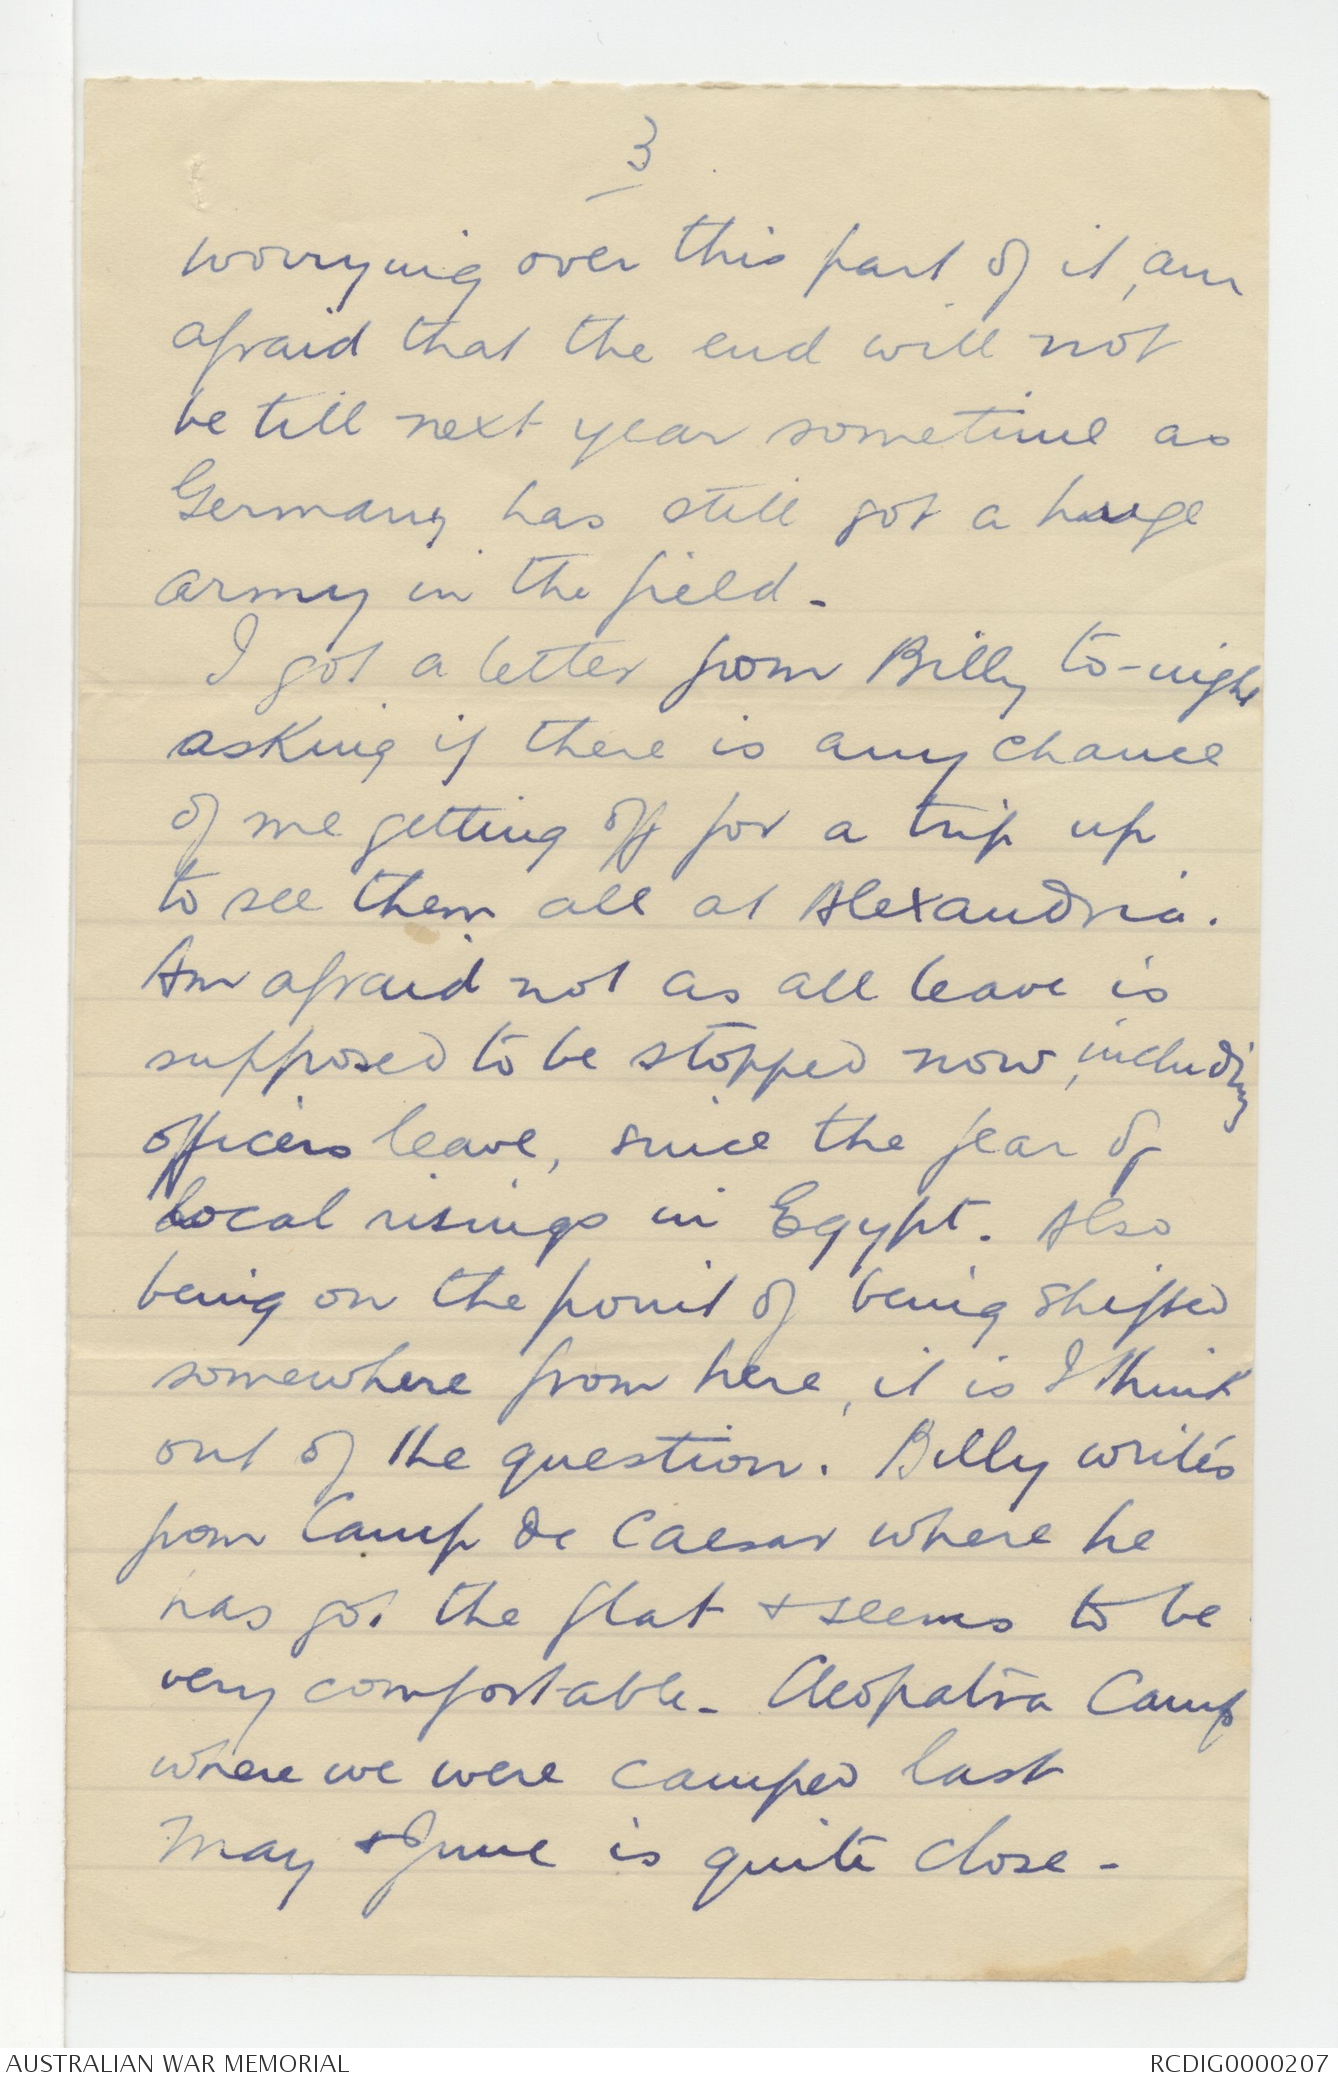 3
worrying over this part of it, am
afraid that the end will not
be till next year sometime as
Germany has still got a huge
army in the field.
I got a letter from Billy to-night
asking if there is any chance
of me getting off for a trip up
to see them all at Alexandria.
Am afraid not as all leave is
supposed to be stopped now, including
officers leave, since the fear of
local risings in Egypt. Also
being on the point of being shifted
somewhere from here, it is I think
out of the question. Billy writes
from Camp de Caesar where he
has got the flat & seems to be
very comfortable. Cleopatra Camp
where we were camped last
May & June is quite close.
AUSTRALIAN WAR MEMORIAL
RCDIG0000207